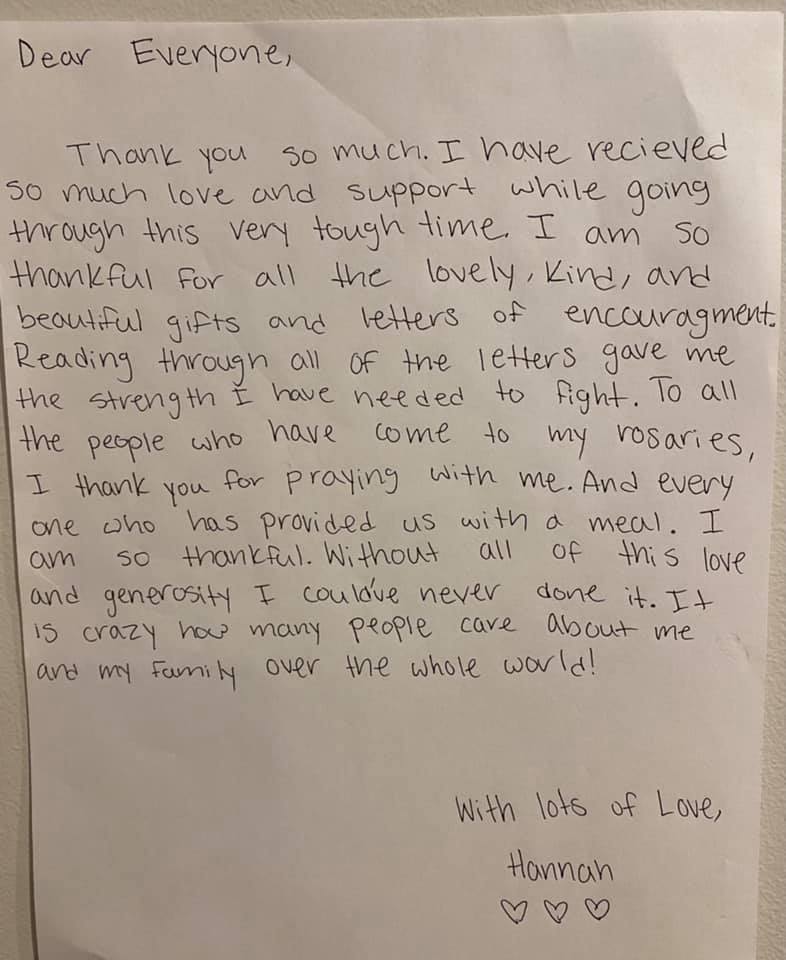 Dear Everyone,
Thank you so much. I have recieved
so much love and support while going
through this very tough time. I am so
thankful for all the lovely, kind, and
beautiful gifts and letters of encouragment.
Reading through all of the letters gave me
the strength I have needed to fight. To all
the people who have come to my rosaries,
I thank you for praying with me. And every
one who has provided us with a meal. I
am so thankful. Without all of this love
and generosity I could've never done it. It
is crazy how many people care about me
and my family over the whole world!
With lots of Love,
Hannah
♡ ♡ ♡